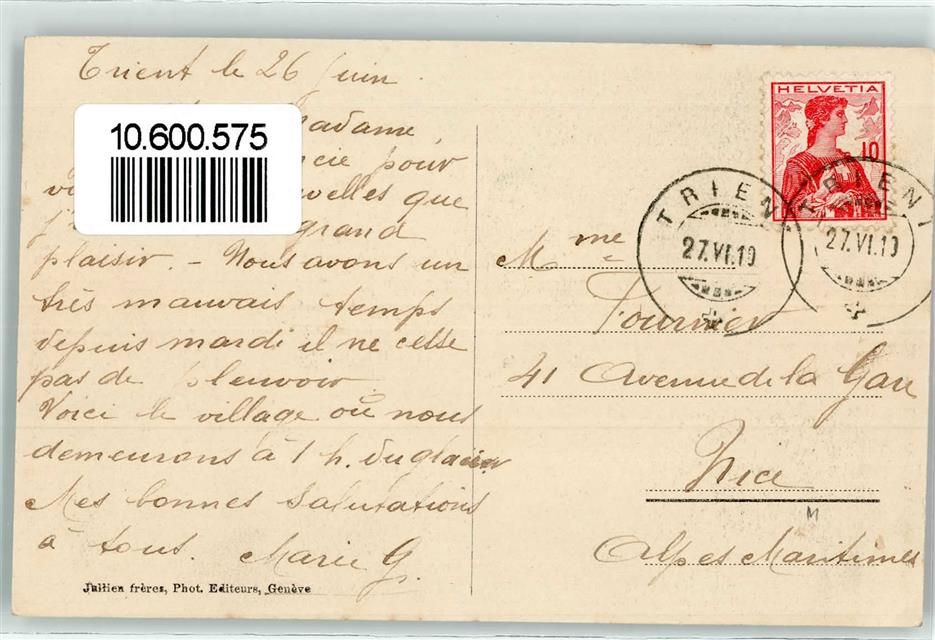 Trient le 26 Juin.
Madame,
pour
velles que
grand
plaisir. - Nous avons un
très mauvais temps
depuis mardi il ne cesse
pas de pleuvoir
Voici le village où nous
demeurons à 1 h. du glacier
Mes bonnes salutations
à tous. Marie G.
Jullien frères, Phot. Editeurs, Genève
10.600.575
HELVETIA
10
TRIENT
27.VI.10
TRIENT
27.VI.10
Mme
Fournier
41 Avenue de la Gare
Nice
M
Alpes Maritimes